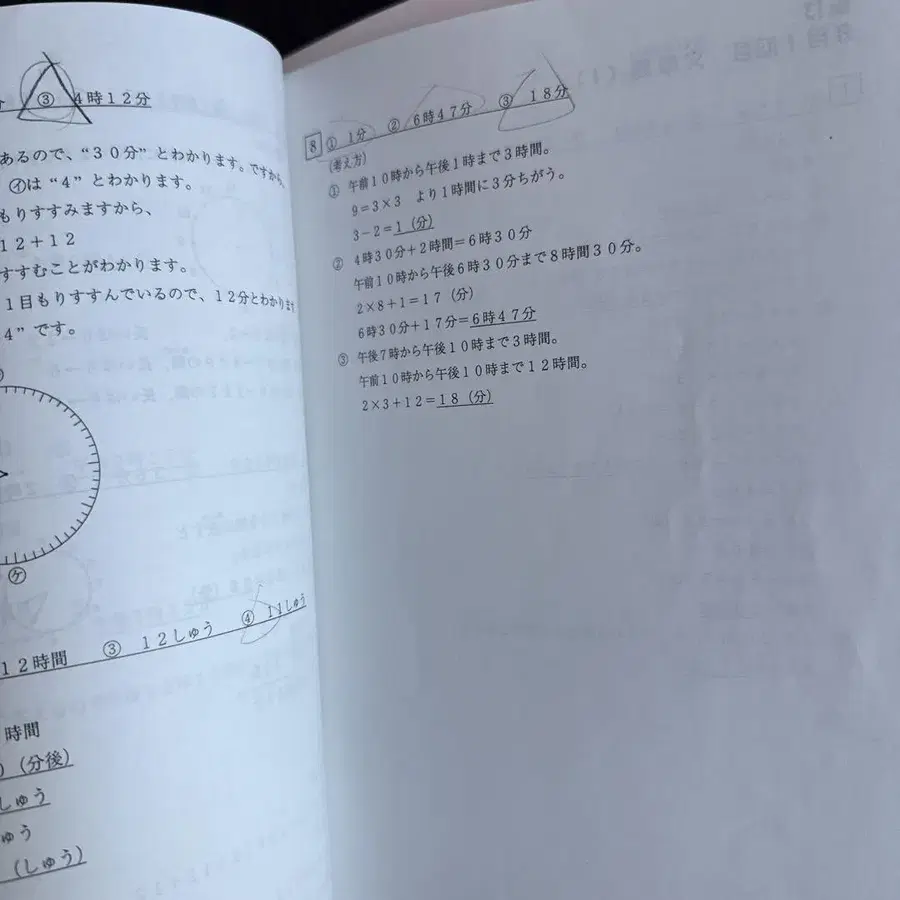 ③ 4時12分
あるので、“30分”とわかります。ですから、
㋑は“4”とわかります。
もりすすみますから、
12+12
すすむことがわかります。
1目もりすすんでいるので、12分とわかります
4”です。
㋘
12時間 ③ 12しゅう ④ 11しゅう
時間
(分後)
しゅう
ゅう
(しゅう)
8 ① 1分 ② 6時47分 ③ 18分
(考え方)
① 午前10時から午後1時まで3時間。
9=3×3 より1時間に3分ちがう。
3-2=1(分)
② 4時30分+2時間=6時30分
午前10時から午後6時30分まで8時間30分。
2×8+1=17(分)
6時30分+17分=6時47分
③ 午後7時から午後10時まで3時間。
午前10時から午後10時まで12時間。
2×3+12=18(分)